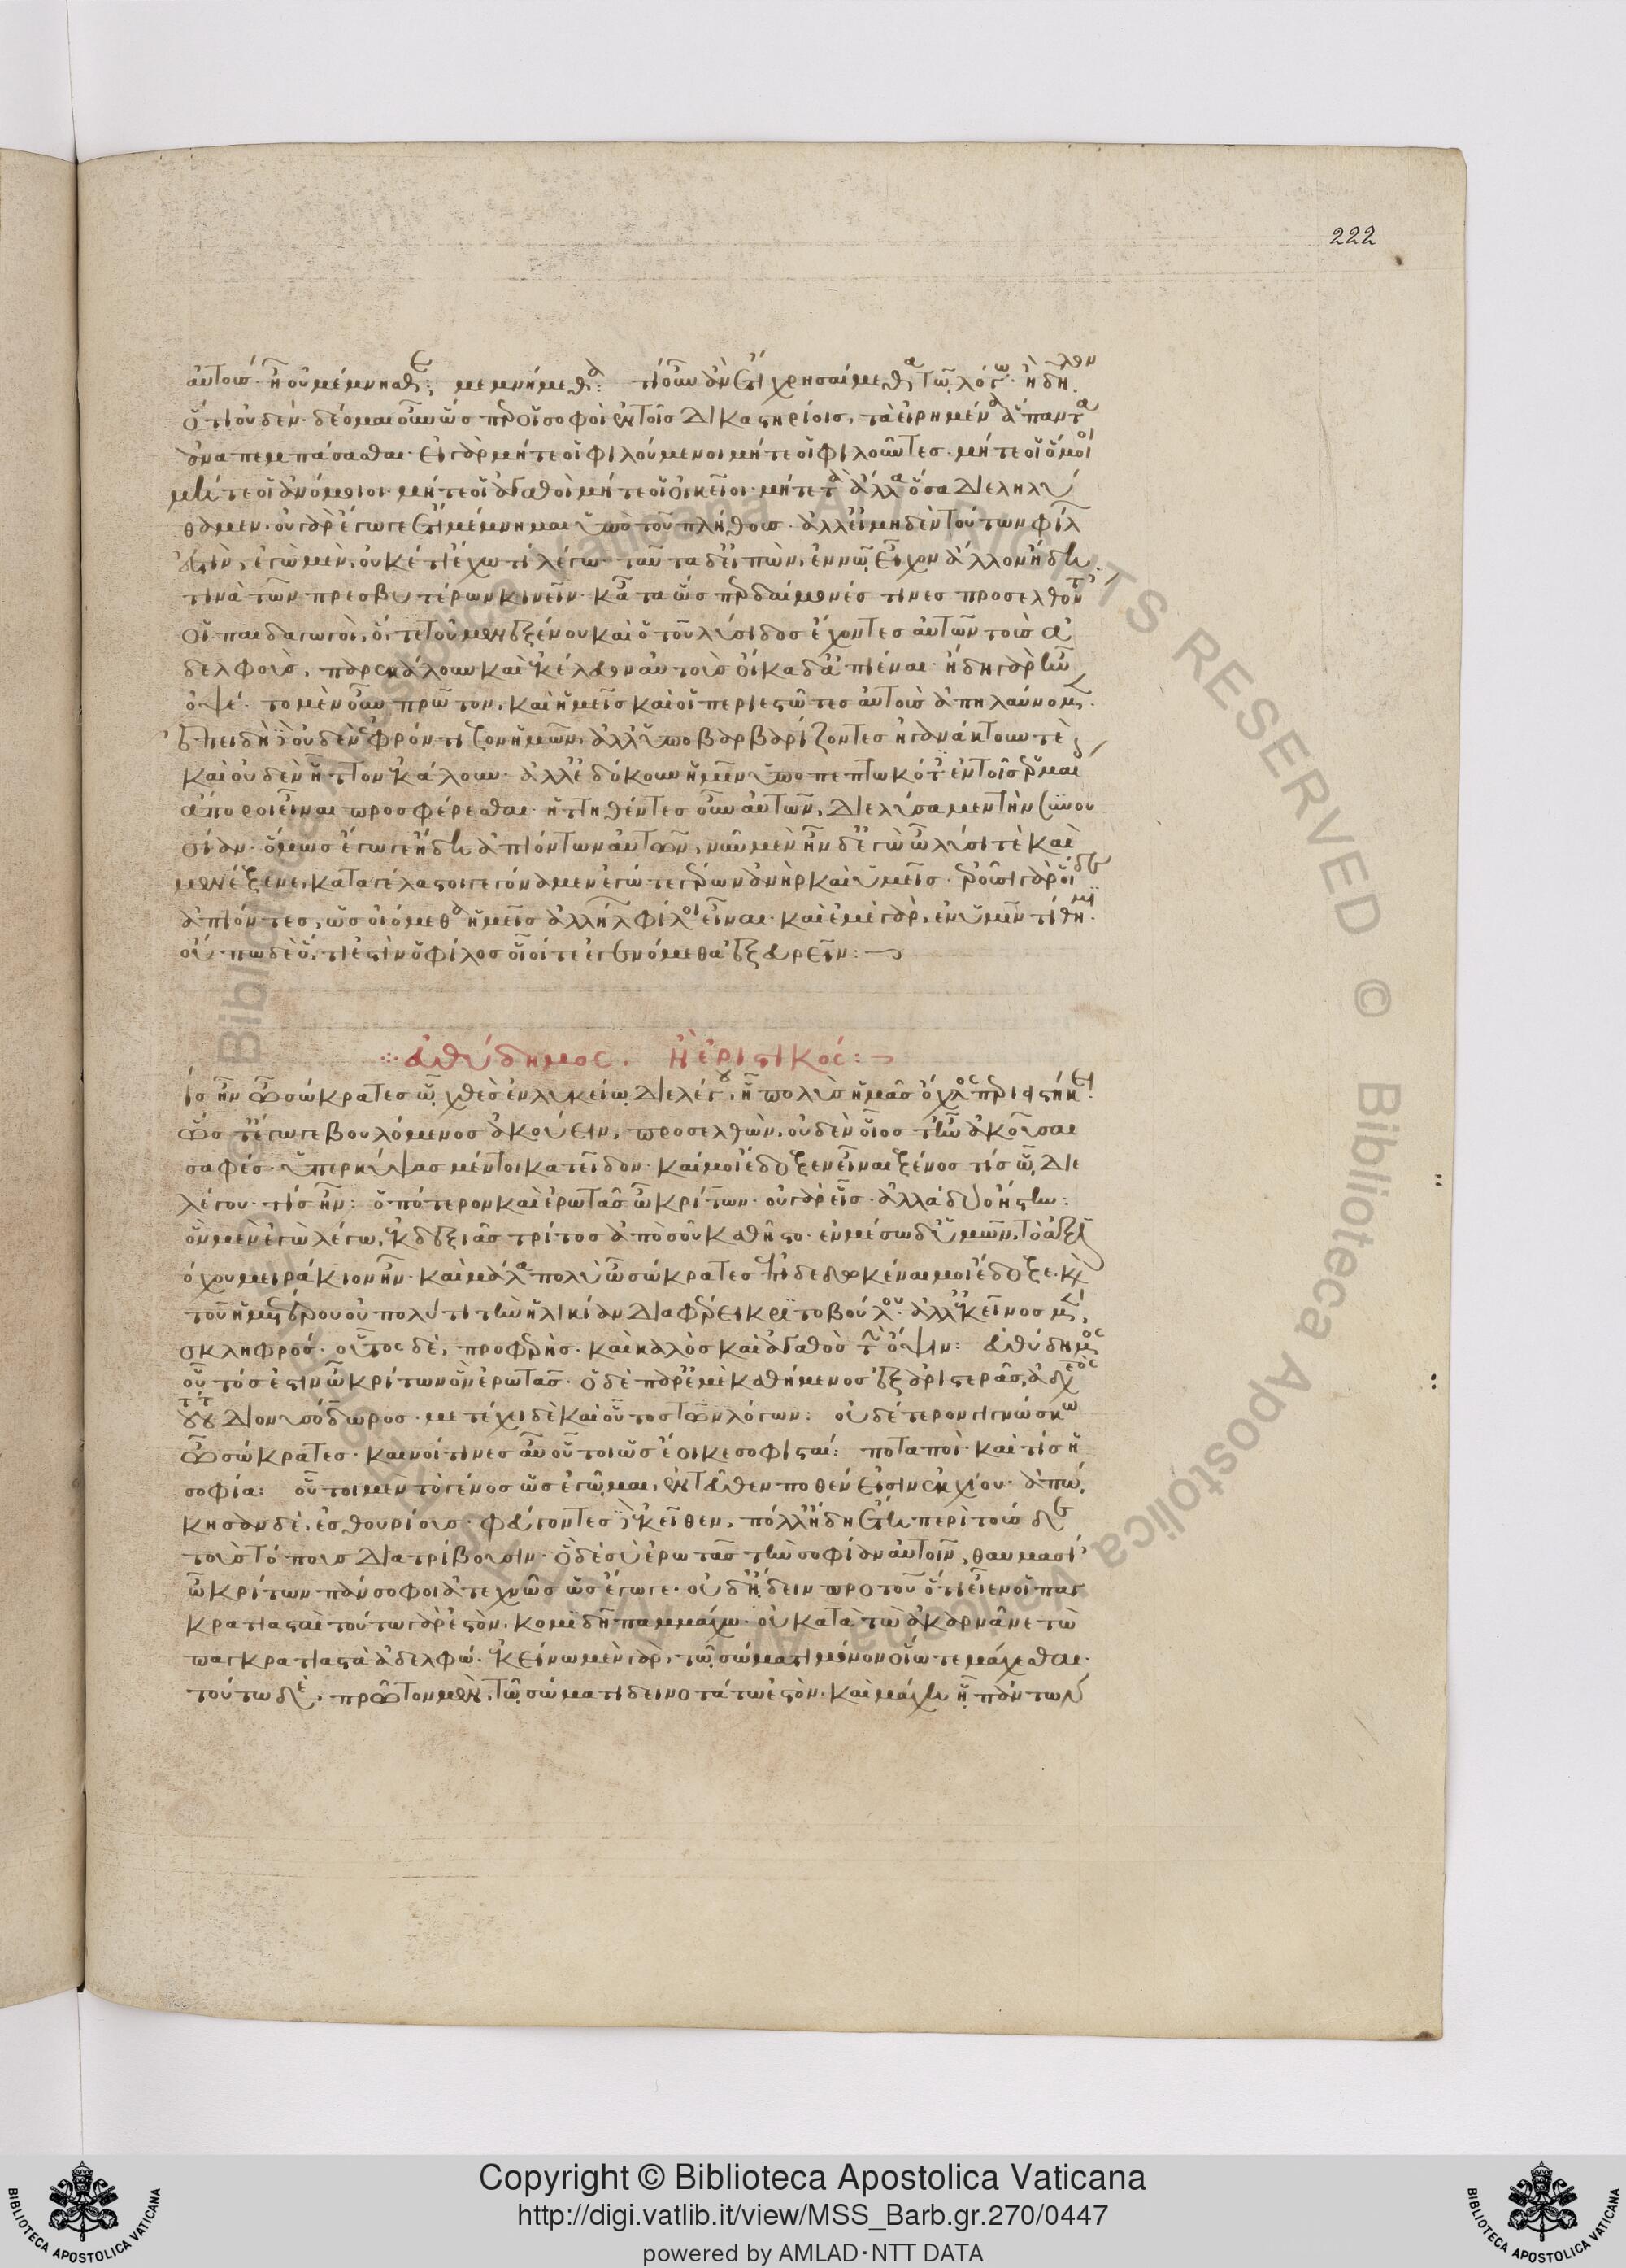 222
αὐτοῖς. ἢ οὐ μέμνησθε; μεμνήμεθα: τί οὖν ἂν ἔτι χρησαίμεθα τῷ λόγω. ἢ δῆλον
ὅτι οὐδέν. δέομαι οὖν ὥσπερ οἱ σοφοὶ ἐν τοῖς δικαστηρίοις, τὰ εἰρημένα ἅπαντα
ἀναπεμπάσασθαι. εἰ γὰρ μήτε οἱ φιλούμενοι μήτε οἱ φιλοῦντες. μήτε οἱ ὅμοιοι
μήτε οἱ ἀνόμοιοι. μήτε οἱ ἀγαθοὶ μήτε οἱ οἰκεῖοι. μήτε τὰ ἄλλα ὅσα διεληλύ
θαμεν. οὐ γὰρ ἔγωγε ἔτι μέμνημαι ὑπὸ τοῦ πλήθους. ἀλλ' εἰ μηδὲν τούτων φίλον
ἐστὶν, ἐγὼ μὲν, οὐκέτι ἔχω τί λέγω. ταῦτα δ' εἰπὼν, ἐν νῷ εἶχον ἄλλον ἤδη
τινὰ τῶν πρεσβυτέρων κινεῖν. κᾆτα ὥσπερ δαίμονές τινες προσελθόντες
οἱ παιδαγωγοὶ, ὅ, τε τοῦ μενεξένου καὶ ὁ τοῦ λύσιδος ἔχοντες αὐτῶν τοὺς ἀ
δελφοὺς, παρεκάλουν καὶ ἐκέλευον αὐτοὺς οἴκαδ' ἀπιέναι. ἤδη γὰρ ἦν
ὀψέ. τὸ μὲν οὖν πρῶτον, καὶ ἡμεῖς καὶ οἱ περιεστῶτες αὐτοὺς ἀπηλαύνομεν.
ἐπειδὴ δὲ οὐδὲν ἐφρόντιζον ἡμῶν, ἀλλ' ὑποβαρβαρίζοντες ἠγανάκτουν τε
καὶ οὐδὲν ἧττον ἐκάλουν. ἀλλ' ἐδόκουν ἡμῖν ὑποπεπτωκότες ἐν τοῖς ἑρμαίοις
ἄποροι εἶναι προσφέρεσθαι. ἡττηθέντες οὖν αὐτῶν, διελύσαμεν τὴν συνου
σίαν. ὅμως ἔγωγε ἤδη ἀπιόντων αὐτῶν, νῦν μὲν ἦν δ' ἐγὼ ὦ λύσι τὲ καὶ
μενέξενε, καταγέλαστοι γεγόναμεν ἐγώ τε γέρων ἀνὴρ καὶ ὑμεῖς. ἐροῦσι γὰρ οἵδε
ἀπιόντες, ὡς οἰόμεθα ἡμεῖς ἀλλήλων φίλοι εἶναι. καὶ ἐμὲ γὰρ, ἐν ὑμῖν τίθημι.
οὔπω δὲ ὅ,τι ἐστὶν ὁ φίλος οἷοί τε ἐγενόμεθα ἐξευρεῖν:
εὐθύδημος. ἢ ἐριστικός:
ίς ἦν ὦ σώκρατες ᾧ χθὲς ἐν λυκείῳ διελέγου, ἦ πολὺς ὑμᾶς ὄχλος περιεστήκει.
ὥς τ' ἔγωγε βουλόμενος ἀκούειν, προσελθὼν, οὐδὲν οἷός τ' ἦν ἀκοῦσαι
σαφές. ὑπερκύψας μέντοι κατεῖδον. καί μοι ἔδοξεν εἶναι ξένος τίς ᾧ διε
λέγου. τίς ἦν: ὁπότερον καὶ ἐρωτᾷς ὦ κρίτων. οὐ γὰρ εἷς. ἀλλὰ δύ' ἤστην:
ὃν μὲν ἐγὼ λέγω, ἐκ δεξιᾶς τρίτος ἀπὸ σοῦ καθῆστο. ἐν μέσω δ' ὑμῶν, τὸ ἀξι
όχου μειράκιον ἦν. καὶ μάλα πολὺ ὦ σώκρατες ἐπιδεδωκέναι μοι ἔδοξε. καὶ
τοῦ ἡμετέρου οὐ πολύ τι τὴν ἡλικίαν διαφέρει κριτοβούλου. ἀλλ' ἐκεῖνος μὲν,
σκληφρός. οὗτος δὲ, προφερὴς. καὶ καλὸς καὶ ἀγαθὸς τὴν ὄψιν: εὐθύδημος
οὗτός ἐστιν ὦ κρίτων ὃν ἐρωτᾷς. ὁ δὲ παρ' ἐμὲ καθήμενος ἐξ ἀριστερᾶς, ἀδελφὸς
τούτου διονυσόδωρος. μετέχει δὲ καὶ οὗτος τῶν λόγων: οὐδέτερον γιγνώσκω
ὦ σώκρατες. καινοί τινες αὖ οὗτοι ὡς ἔοικε σοφισταί: ποταποὶ. καὶ τίς ἡ
σοφία: οὗτοι μὲν τὸ γένος ὡς ἐγᾦμαι, ἐντεῦθεν ποθέν εἰσιν ἐκ χίου. ἀπῴ
κησαν δὲ, ἐς θουρίους. φεύγοντες δὲ ἐκεῖθεν, πόλλ' ἤδη ἔτη περὶ τούσδε
τοὺς τόπους διατρίβουσιν. ὃ δὲ σὺ ἐρωτᾷς τὴν σοφίαν αὐτοῖν, θαυμασί'
ὦ κρίτων πάνσοφοι ἀτεχνῶς ὡς ἔγωγε. οὐδ' ᾔδειν προτοῦ ὅτι εἶεν οἱ παγ
κρατιασταὶ τούτω γὰρ ἐστὸν, κομιδῇ παμμάχω. οὐ κατὰ τὼ ἀκαρνᾶνε τὼ
παγκρατιαστὰ ἀδελφώ. ἐκείνω μὲν γὰρ, τῷ σώματι μόνον οἵω τε μάχεσθαι.
τούτω δὲ, πρῶτον μὲν, τῷ σώματι δεινοτάτω ἐστὸν. καὶ μάχῃ ᾗ πάντων
Copyright © Biblioteca Apostolica Vaticana
http://digi.vatlib.it/view/MSS_Barb.gr.270/0447
powered by AMLAD·NTT DATA